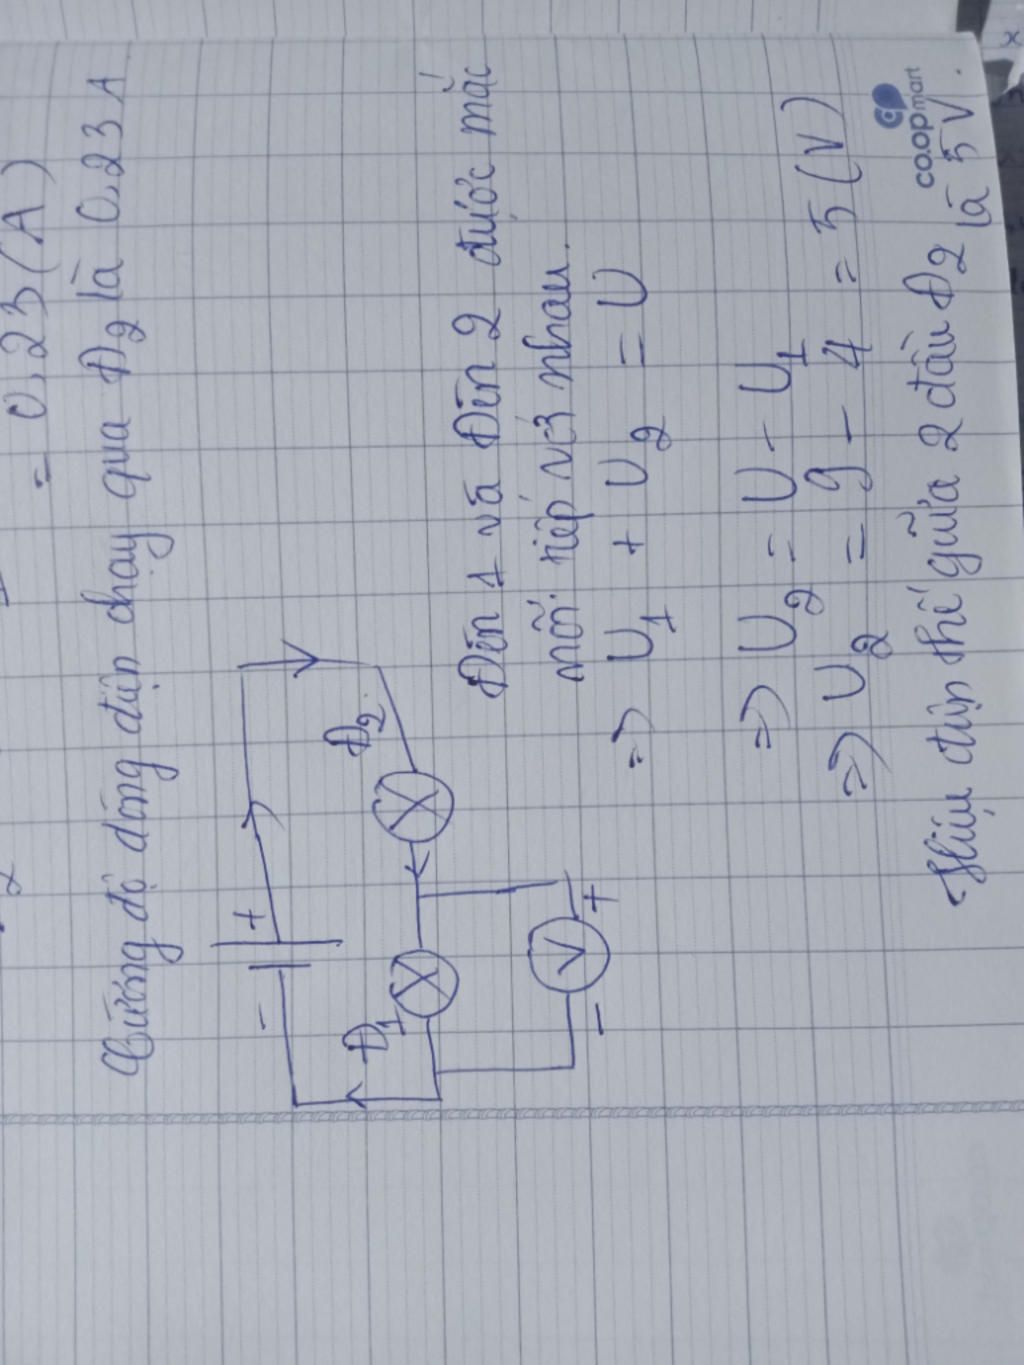 = 0,23 (A)
Cường độ dòng điện chạy qua Đ2 là 0,23 A
- +
Đ1 Đ2
V
- +
Đèn 1 và Đèn 2 được mắc
nối tiếp với nhau.
=> U1 + U2 = U
=> U2 = U - U1
=> U2 = 9 - 4 = 5 (V)
Hiệu điện thế giữa 2 đầu Đ2 là 5 V.
co.opmart